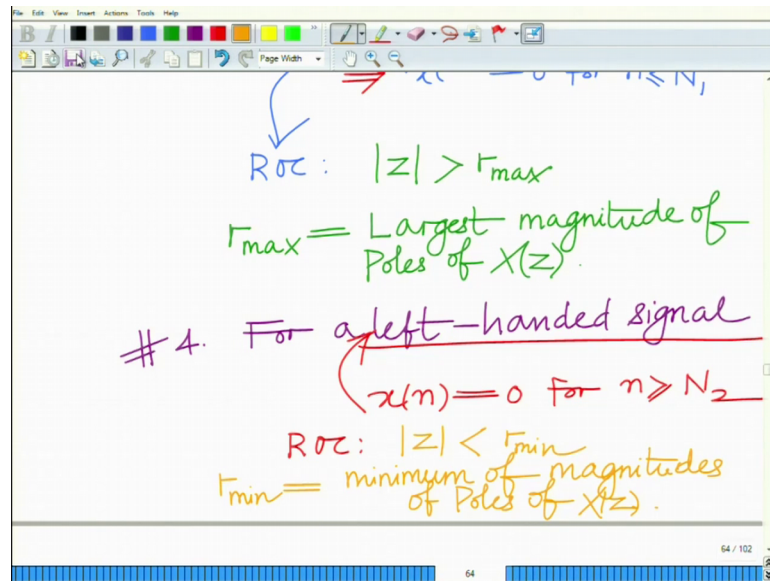 File Edit View Insert Actions Tools Help
B I
Page Width
= 0 for n ≤ N₁
ROC: |z| > rmax
rmax = Largest magnitude of
Poles of X(z).
#4. For a left-handed signal
x(n) = 0 for n ≥ N₂
ROC: |z| < rmin
rmin = minimum of magnitudes
of Poles of X(z).
64 / 102
64